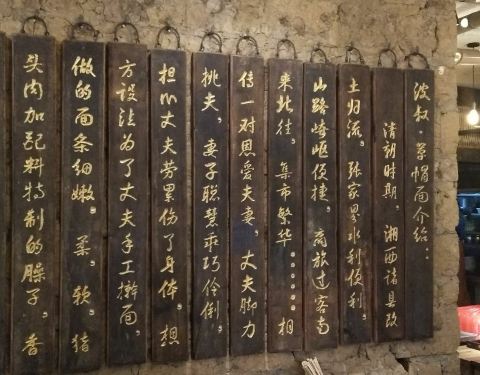 波叔·草帽面介绍：
清朝时期，湘西诸县改
土归流。张家界水利便利，
山路崎岖便捷，商旅过客南
来北往，集市繁华……相
传一对恩爱夫妻，丈夫脚力
挑夫，妻子聪慧乖巧伶俐，
担心丈夫劳累伤了身体，想
方设法为了丈夫手工擀面，
做的面条细嫩。柔，软，猪
头肉加配料特制的臊子，香